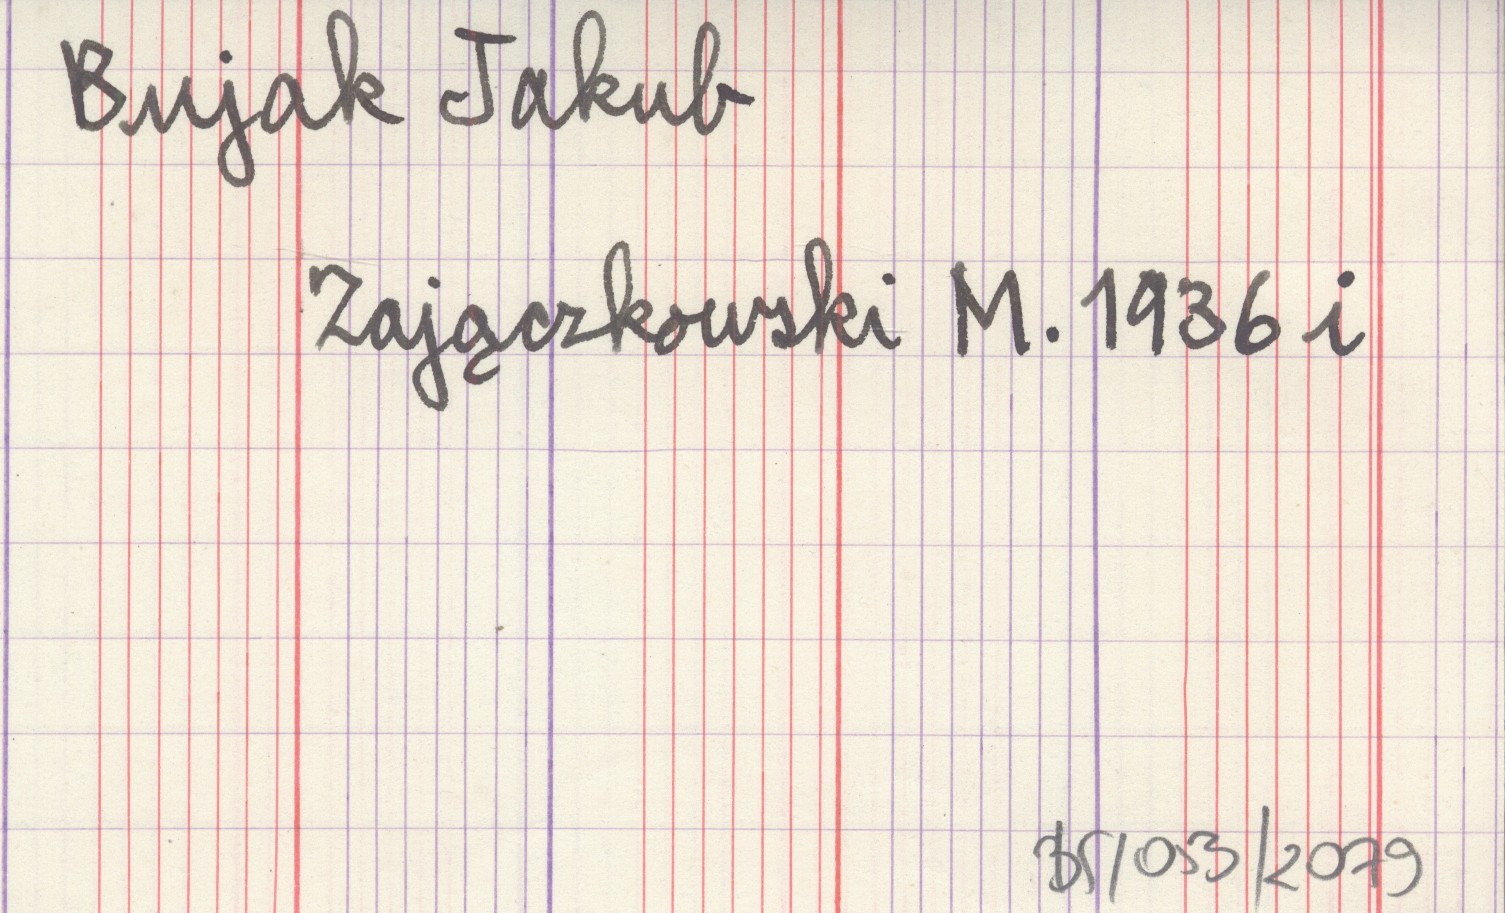 Bujak Jakub
Zajączkowski M. 1936 i
BS/053/2079